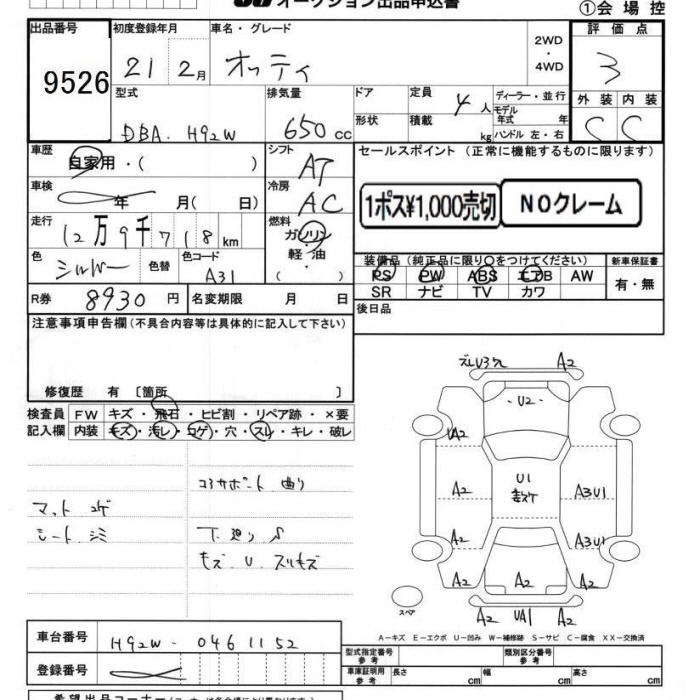 オークション出品申込書
①会場控
出品番号
9526
初度登録年月
21 2月
車名・グレード
オッティ
2WD
・
4WD
評価点
3
型式
DBA. H92W
排気量
650 cc
ドア
形状
定員
4人
積載
kg
ディーラー・並行
モデル年式 年
ハンドル 左・右
外装 内装
C C
車歴
自家用・( )
シフト
AT
セールスポイント (正常に機能するものに限ります)
車検
年 月( 日)
冷房
AC
1ポス¥1,000売切
NOクレーム
走行
12万9千718km
燃料
ガソリン
軽・油
( )
色
シルバー
色替
色コード
A31
装備品 (純正品に限り○をつけてください)
PS PW ABS エアB AW
SR ナビ TV カワ
新車保証書
有・無
R券
8930円
名変期限 月 日
後日品
注意事項申告欄(不具合内容等は具体的に記入して下さい)
修復歴 有 〔箇所 〕
検査員
記入欄
FW キズ・飛石・ヒビ割・リペア跡・×要
内装 キズ・汚レ・コゲ・穴・スレ・キレ・破レ
コアサポート 曲り
マット コゲ
シート シミ
下廻り S
キズ U スリキズ
ズレU3 A2
U2
UA2
U1
A2
A3U1
A2
A3U1
A2 A2 A2
スペア
A2 UA1 A2
A−キズ E−エクボ U−凹み W−補修跡 S−サビ C−腐食 XX−交換済
車台番号
H92W - 0461152
登録番号
型式指定番号
参考
類別区分番号
参考
車庫証明用
参考
長さ cm
幅 cm
高さ cm
希望出品コーナー